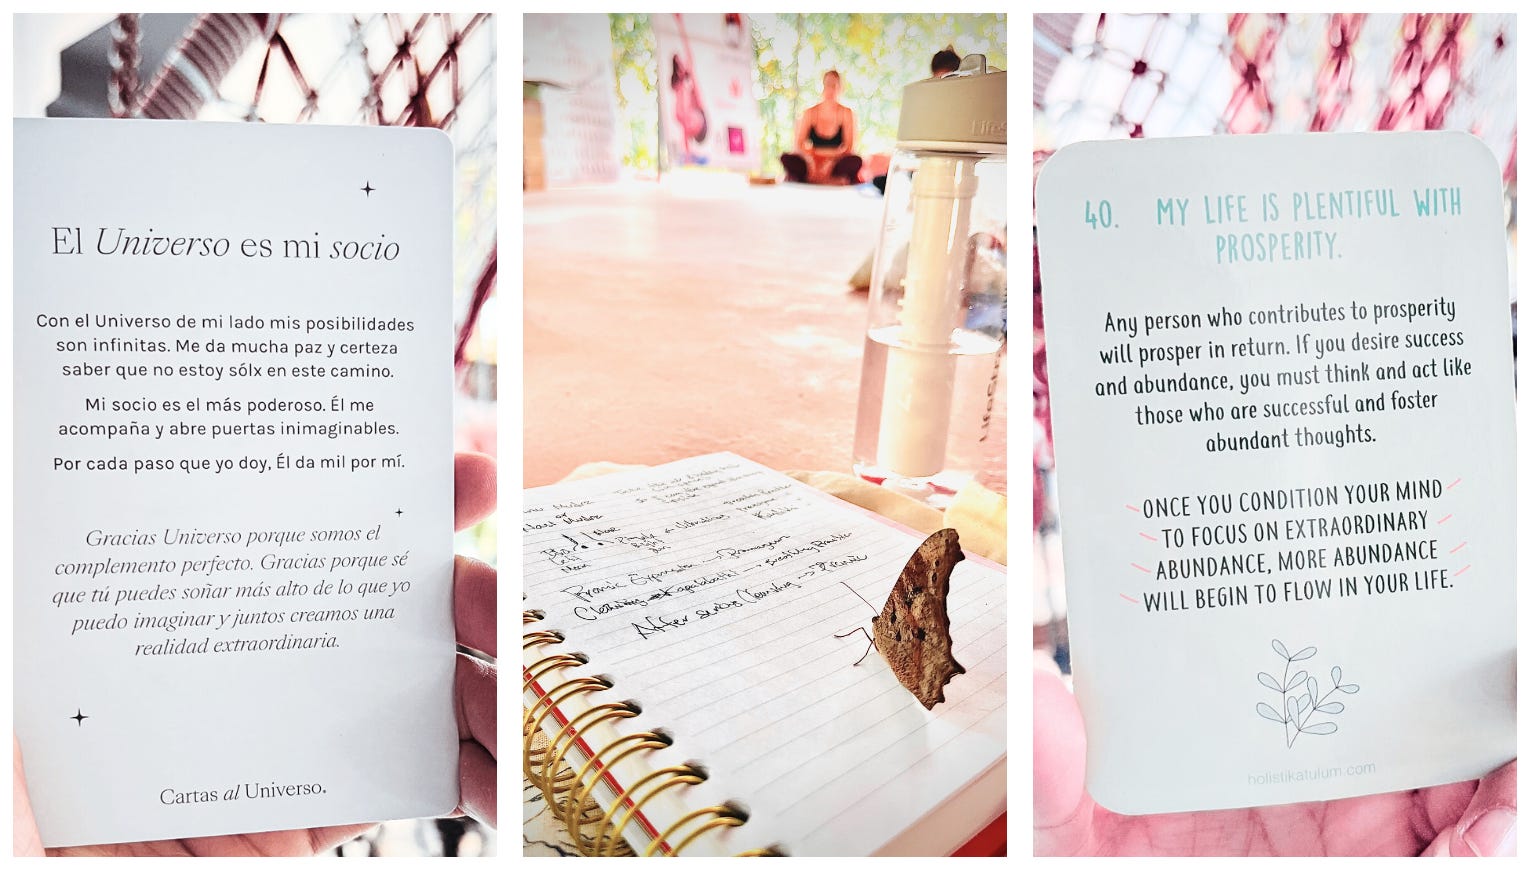 El Universo es mi socio
Con el Universo de mi lado mis posibilidades
son infinitas. Me da mucha paz y certeza
saber que no estoy sólx en este camino.
Mi socio es el más poderoso. Él me
acompaña y abre puertas inimaginables.
Por cada paso que yo doy, Él da mil por mí.
Gracias Universo porque somos el
complemento perfecto. Gracias porque sé
que tú puedes soñar más alto de lo que yo
puedo imaginar y juntos creamos una
realidad extraordinaria.
Cartas al Universo.
After
40. MY LIFE IS PLENTIFUL WITH
PROSPERITY.
Any person who contributes to prosperity
will prosper in return. If you desire success
and abundance, you must think and act like
those who are successful and foster
abundant thoughts.
ONCE YOU CONDITION YOUR MIND
TO FOCUS ON EXTRAORDINARY
ABUNDANCE, MORE ABUNDANCE
WILL BEGIN TO FLOW IN YOUR LIFE.
holistikatulum.com